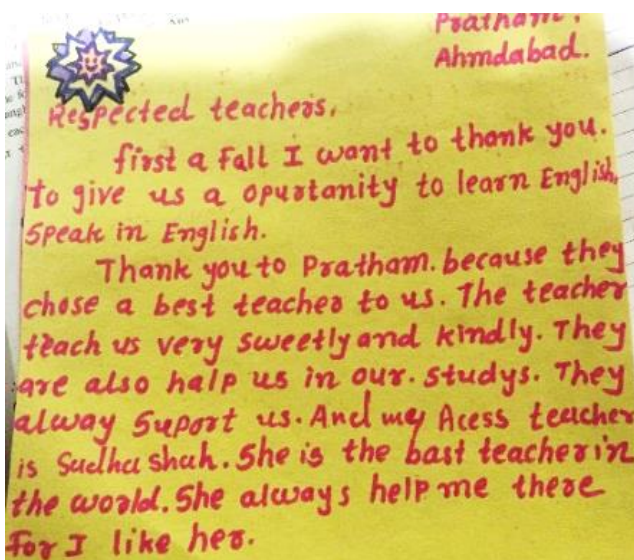 Pratham,
Ahmdabad.
Respected teachers,
first a Fall I want to thank you.
To give us a opurtanity to learn English,
Speak in English.
Thank you to Pratham. because they
chose a best teacher to us. The teacher
teach us very sweetly and kindly. They
are also halp us in our. studys. They
alway suport us. And my Acess teacher
is Sudha shah. She is the bast teacher in
the world. She always help me there
for I like her.